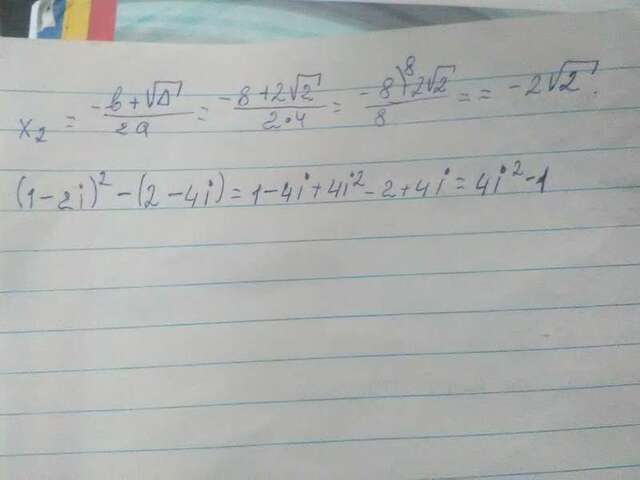 x₂ = (-b + √Δ)/(2a) = (-8 + 2√2)/(2•4) = (-8 + 2√2)/8 = = -2√2.
(1-2i)² - (2-4i) = 1-4i+4i²-2+4i = 4i²-1